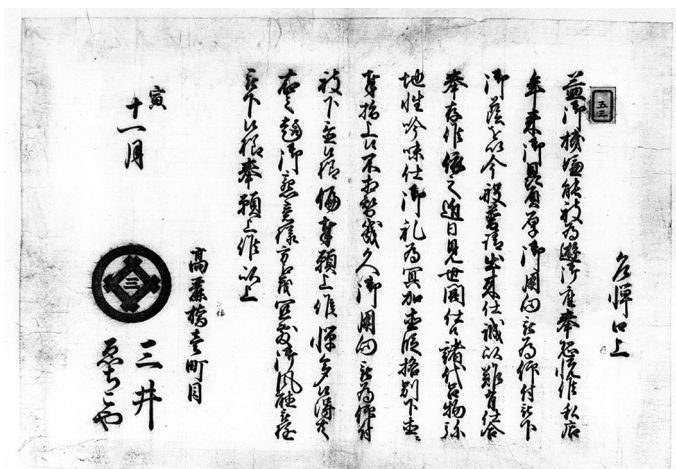 乍憚口上
益御機嫌能被為遊御座奉恐悦候私店
年来御贔屓厚御用向被為仰付被下
御蔭を以今般普請出来仕誠以難有仕合
奉存候依之近日見世開仕候諸代呂物弥
地性吟味仕御礼為冥加直段格別下直ニ
奉指上候不相替幾久御用向被為仰付
被下置候様偏奉願上候憚多候得共
右之趣御懇意様方
被下候様奉願上候以上
寅
十一月
高麗橋壱町目
三井
ゑちごや
三
五三